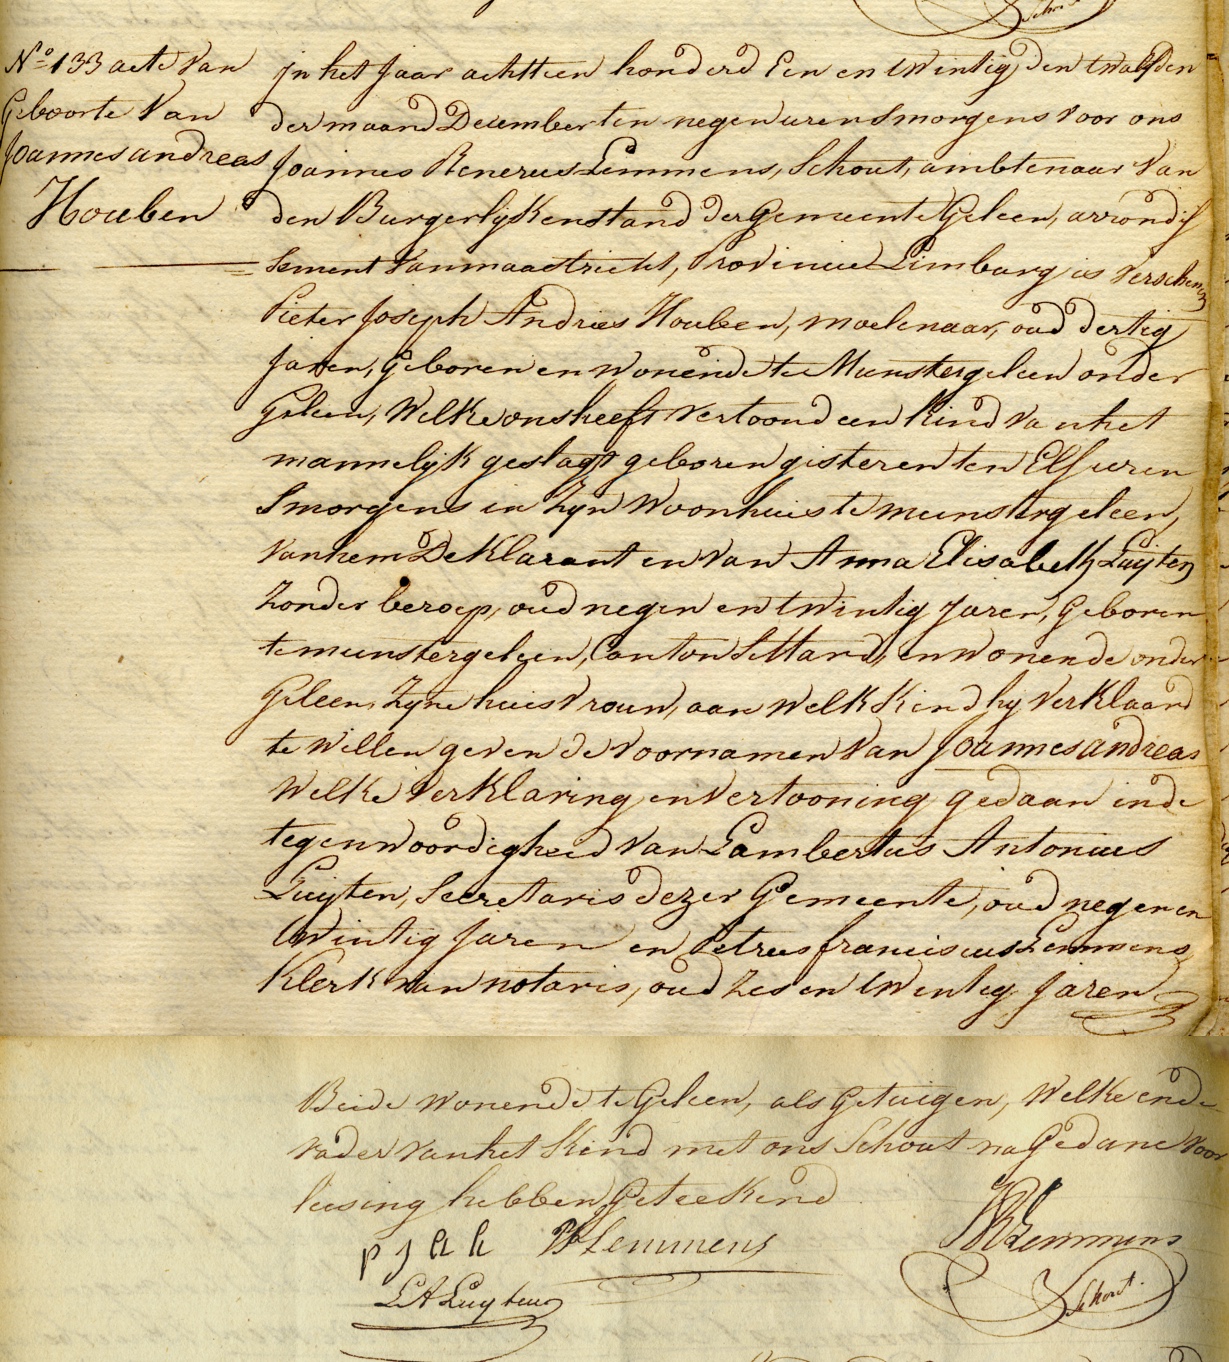 Schout
No 133 acte Van
Geboorte Van
Joannes andreas
Houben
jn het Jaar achttien honderd Een en twintig, den twalfden
der maand December ten negen uren Smorgens voor ons
Joannes Renerus Lemmens, Schout, ambtenaar Van
den Burgerlyken stand der Gemeente Geleen, arrondis
sement Van maastricht, Provincie Limburg is verschenen
Pieter Joseph Andries Houben, moelenaar, oud dertig
Jaren, Geboren en wonende te Munstergeleen onder
Geleen, Welke ons heeft vertoond een Kind van het
mannelyk geslagt geboren gisteren ten Elf uren
Smorgens in Zyn Woonhuis te munstergeleen,
van hem Deklarant en van Anna Elisabeth Luyten
Zonder beroep, oud negen en twintig Jaren, Geboren
te munstergeleen, Canton Sittard, en wonende onder
Geleen, Zyne huisvrouw, aan welk Kind hy Verklaard
te Willen geven de Voornamen Van Joannes andreas
Welke Verklaring en Vertooning gedaan in de
tegenwoordigheid Van Lambertus Antonius
Luyten, Secretaris dezer Gemeente, oud negen en
twintig Jaren en Petrus franciscus Lemmens
Klerk van notaris, oud Zes en twintig Jaren
Beide wonende te Geleen, als Getuigen, Welke ende
vader van het Kind met ons Schout na Gedane Voor
leesing hebben Geteekend
p J a h PF Lemmens JR Lemmens
LA Luyten Schout